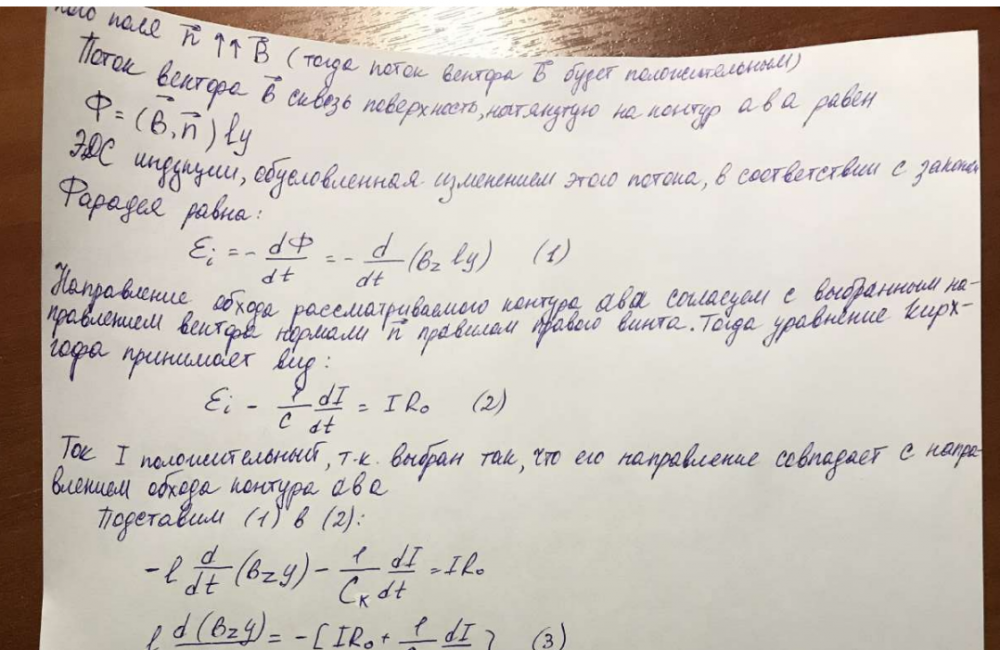 ного поля n⃗ ↑↑ B⃗ (тогда поток вектора B⃗ будет положительным)
Поток вектора B⃗ сквозь поверхность, натянутую на контур ава равен
Ф = (B⃗, n⃗) ly
ЭДС индукции, обусловленная изменением этого потока, в соответствии с законом
Фарадея равна:
Ɛi = - dФ/dt = - d/dt (Bz ly) (1)
Направление обхода рассматриваемого контура ава согласуем с выбранным на-
правлением вектора нормали n⃗ правилом правого винта. Тогда уравнение Кирх-
гофа принимает вид:
Ɛi - 1/C dI/dt = IR₀ (2)
Ток I положительный, т.к. выбран так, что его направление совпадает с напра-
влением обхода контура ава
Подставим (1) в (2):
-l d/dt (Bzy) - 1/Cк dI/dt = IR₀
l d(Bzy) = -[IR₀ + 1 dI] (3)